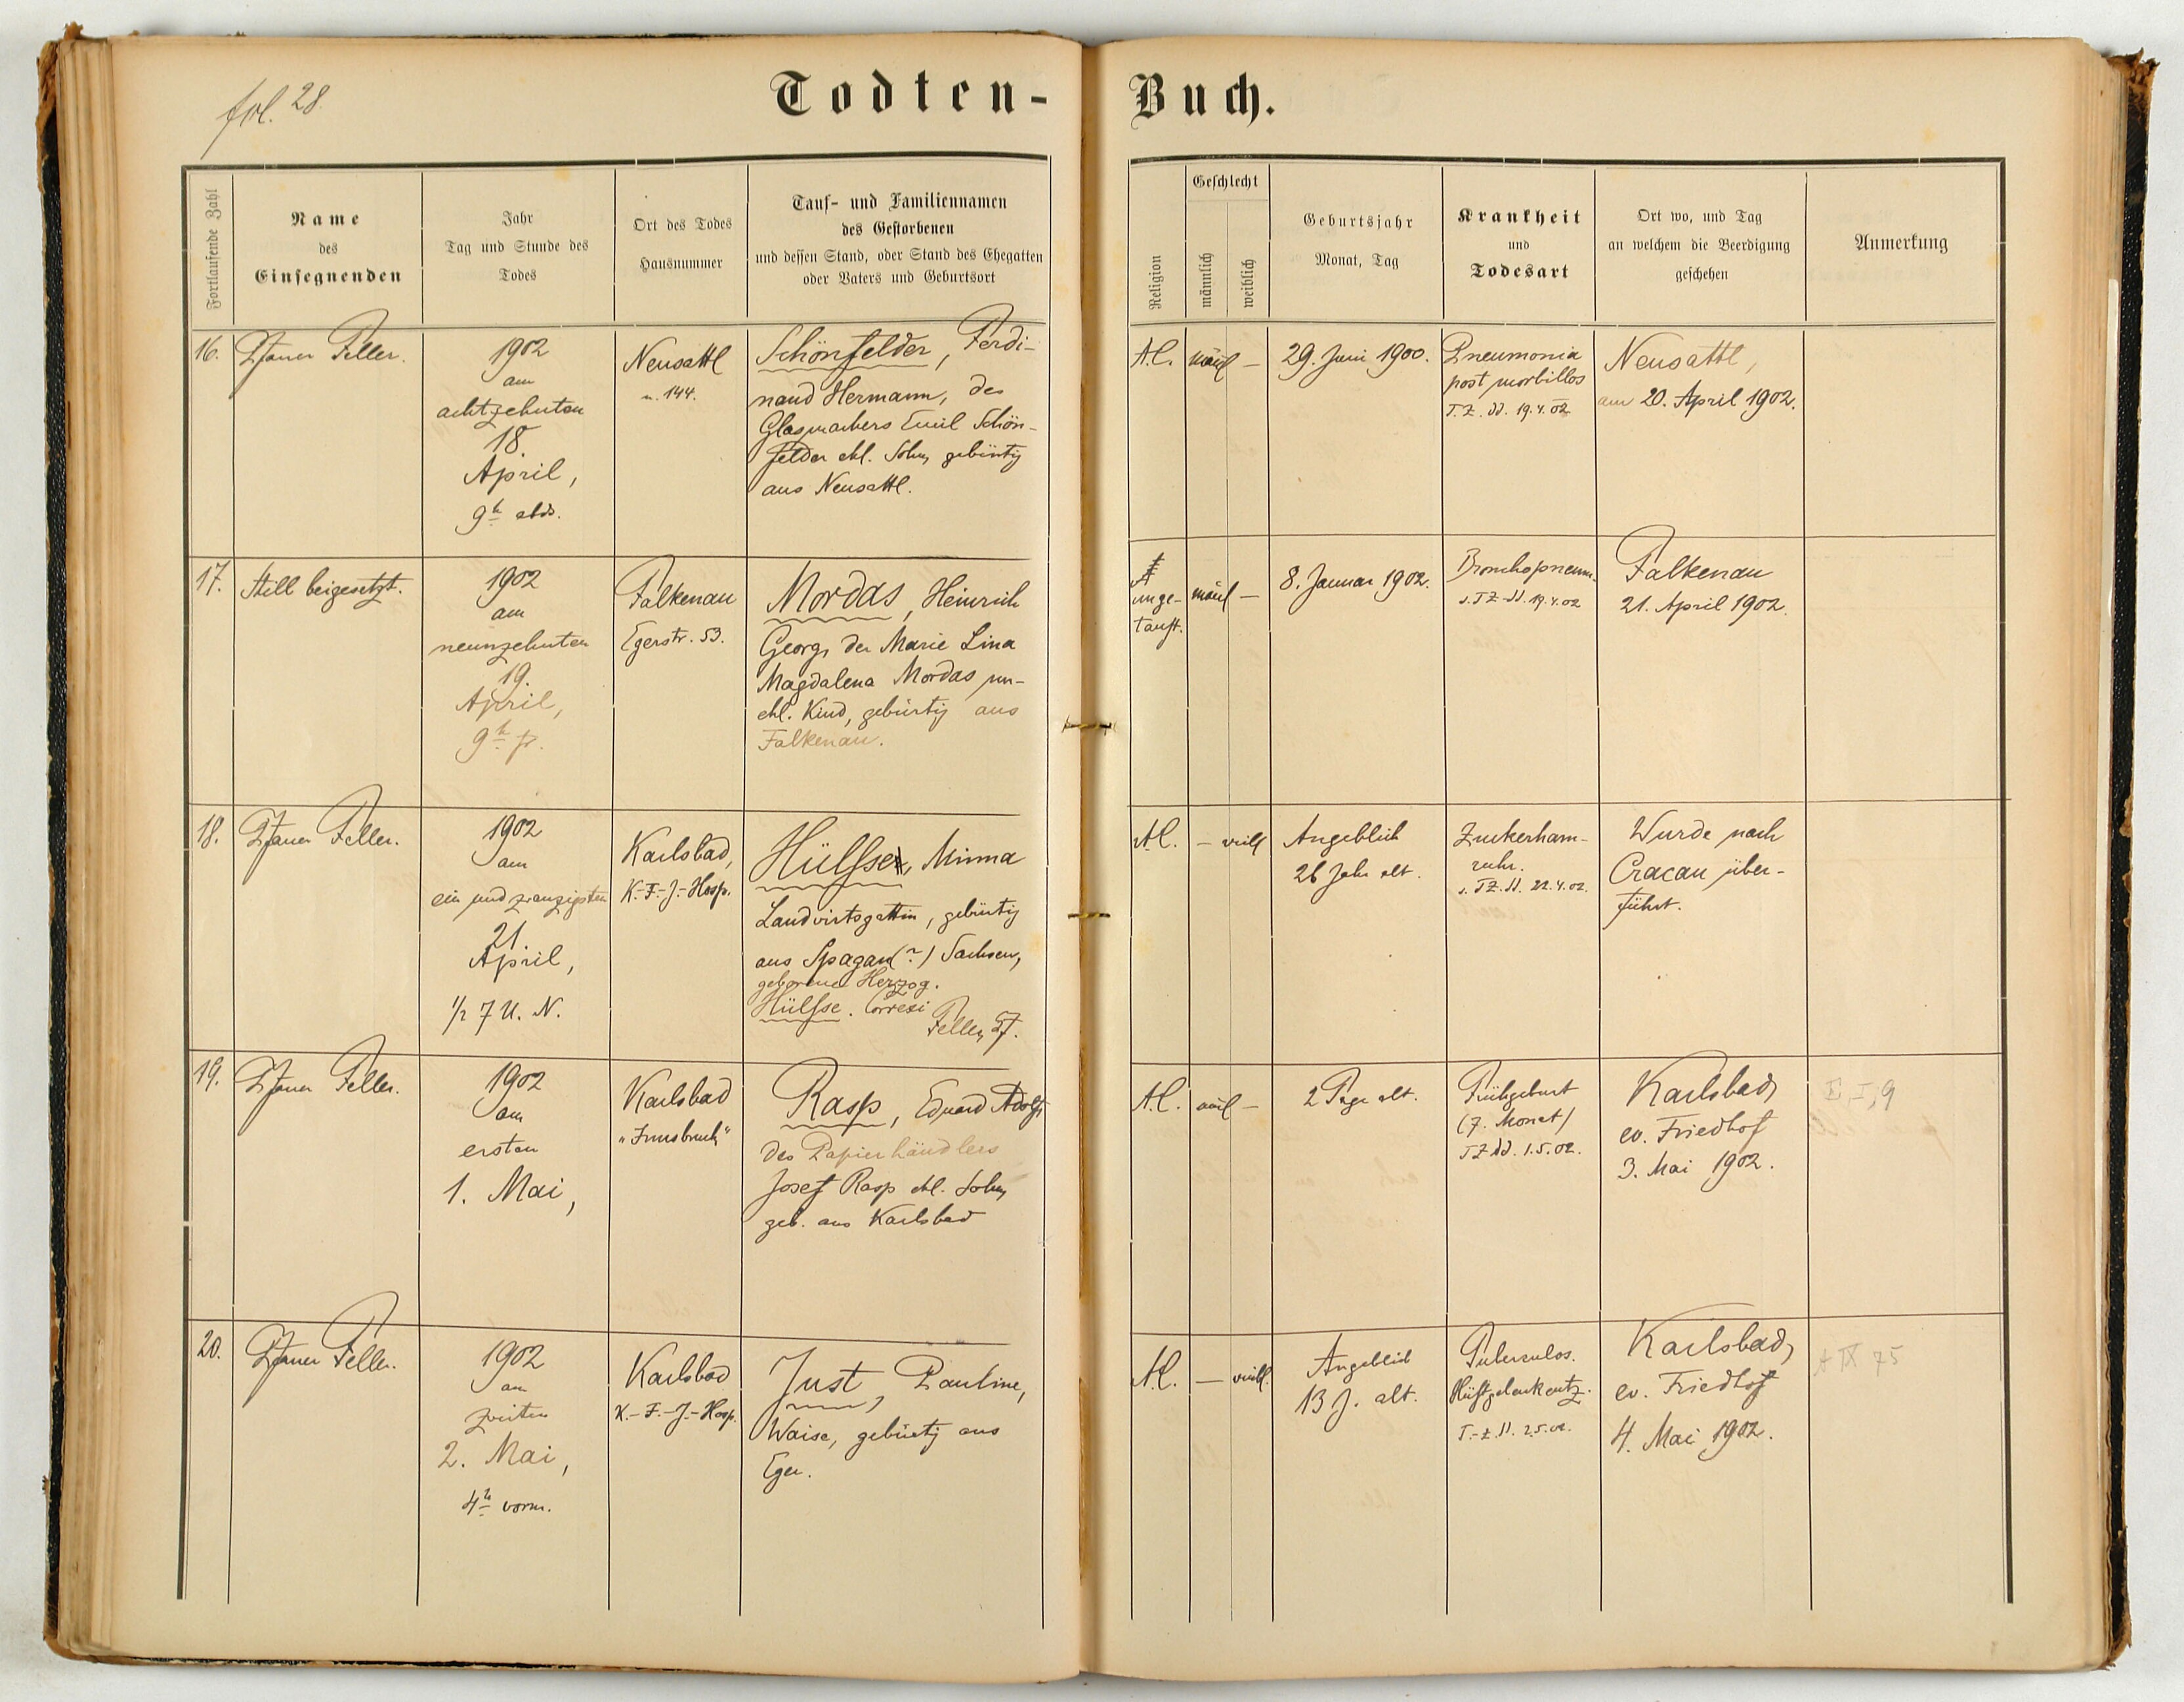 fol. 28.
Todten-Buch.
Fortlaufende Zahl
Name
des
Einsegnenden
Jahr
Tag und Stunde des
Todes
Ort des Todes
Hausnummer
Tauf- und Familiennamen
des Gestorbenen
und dessen Stand, oder Stand des Ehegatten
oder Vaters und Geburtsort
Religion
Geschlecht
männlich
weiblich
Geburtsjahr
Monat, Tag
Krankheit
und
Todesart
Ort wo, und Tag
an welchem die Beerdigung
geschehen
Anmerkung
16.
Pfarrer Feller.
1902
am
achtzehnten
18.
April,
9h abds.
Neusattl
n. 144.
Schönfelder, Ferdi-
nand Hermann, des
Glasmachers Emil Schön-
felder ehl. Sohn, gebürtig
aus Neusattl.
A.C.
männl
—
29. Juni 1900.
Pneumonia
post morbillos
T.Z. dd. 19.4.02
Neusattl,
am 20. April 1902.
17.
Still beigesetzt.
1902
am
neunzehnten
19.
April,
9h fr.
Falkenau
Egerstr. 53.
Mordas, Heinrich
Georg, der Marie Lina
Magdalena Mordas un-
ehl. Kind, gebürtig aus
Falkenau.
unge-
tauft.
männl
—
8. Januar 1902.
Bronchopneum.
s. TZ dd. 19.4.02
Falkenau
21. April 1902.
18.
Pfarrer Feller.
1902
am
ein und zwanzigsten
21.
April,
1/2 7 U. N.
Karlsbad,
K.-F.-J.-Hosp.
Hülsse, Minna
Landwirtsgattin, gebürtig
aus Spagan(?) Sachsen,
geborene Herzog.
Hülsse. Correxi
Feller, Pf.
A.C.
—
weibl
Angeblich
26 Jahr alt.
Zuckerharn-
ruhr.
s. TZ. dd. 22.4.02.
Wurde nach
Cracau über-
führt.
19.
Pfarrer Feller.
1902
am
ersten
1. Mai,
Karlsbad
"Innsbruck"
Rasp, Eduard Adolf,
des Papierhändlers
Josef Rasp ehl. Sohn,
geb. aus Karlsbad
A.C.
männl
—
2 Tage alt.
Frühgeburt
(7. Monat)
TZ dd. 1.5.02.
Karlsbad,
ev. Friedhof
3. Mai 1902.
I, 9
20.
Pfarrer Feller.
1902
am
zweiten
2. Mai,
4h vorm.
Karlsbad
K.-F.-J.-Hosp.
Just, Pauline,
Waise, gebürtig aus
Eger.
A.C.
—
weibl.
Angeblich
13 J. alt.
Tuberculos.
Hüftgelenkentz.
T.-Z. dd. 2.5.02.
Karlsbad,
ev. Friedhof
4. Mai 1902.
A IX 75